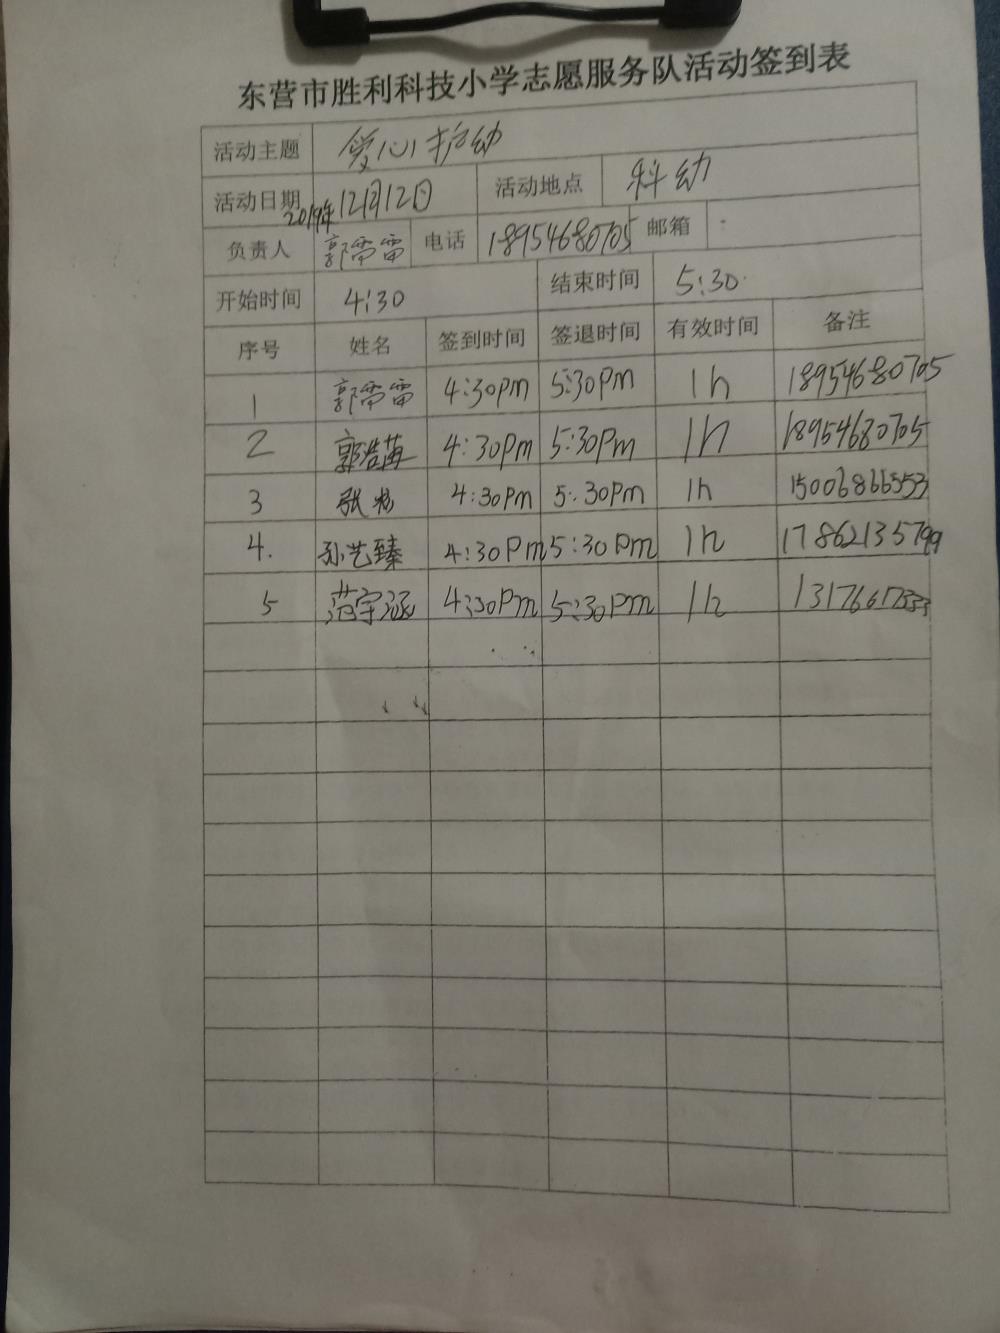 东营市胜利科技小学志愿服务队活动签到表
活动主题 爱心护幼
活动日期 2019年12月12日 活动地点 科幼
负责人 郭雷雷 电话 18954680705 邮箱
开始时间 4:30 结束时间 5:30
序号 姓名 签到时间 签退时间 有效时间 备注
1 郭雷雷 4:30pm 5:30pm 1h 18954680705
2 郭浩 4:30pm 5:30pm 1h 18954680705
3 张 4:30pm 5:30pm 1h 15006866553
4. 孙艺臻 4:30pm 5:30pm 1h 17862135799
5 范宇涵 4:30pm 5:30pm 1h